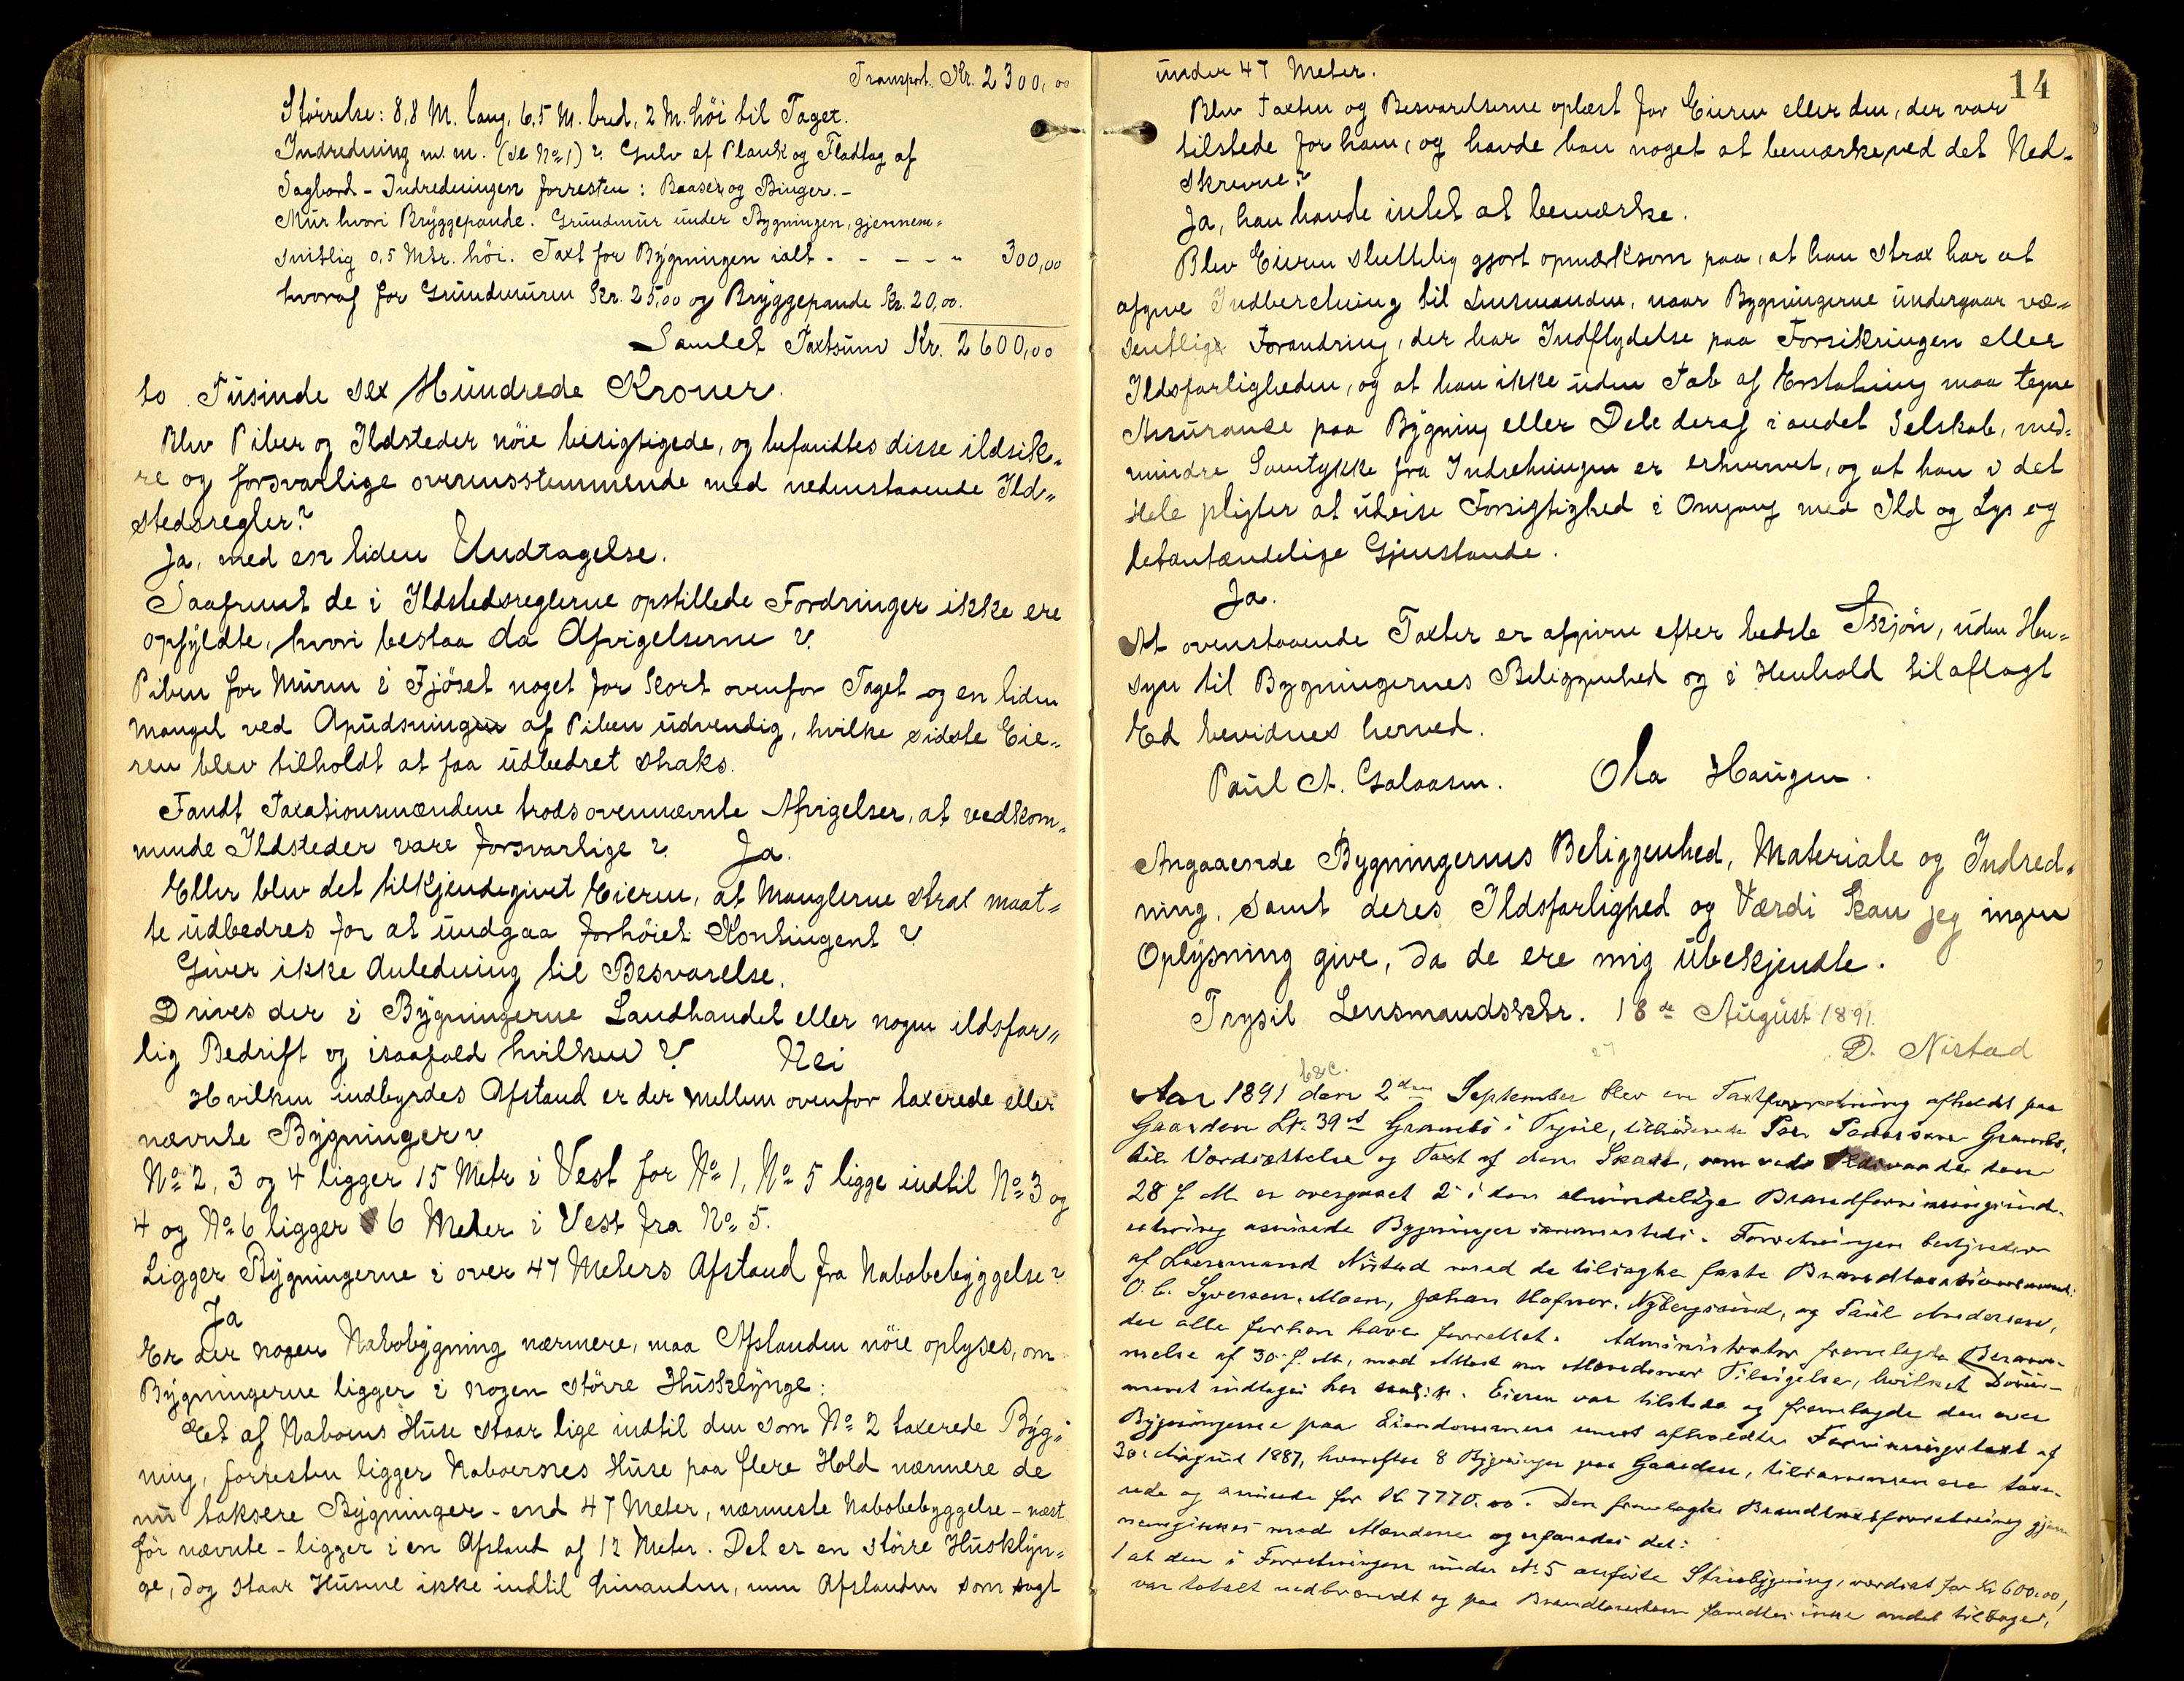 Transport. Kr. 2300,00
Störrelse: 8,8 M. lang, 6,5 M. bred, 2 M. höi til Taget.
Indredning m. m. (se No 1)? Gulv af Plank og Fladtag af
Sagbord - Indredningen forresten: Baaser og Binger. -
Mur hvori Bryggepande. Grundmur under Bygningen, gjennem=
snitlig 0,5 Mtr. höi. Taxt for Bygningen ialt - - - - - " 300,00
hvoraf for Grundmuren Kr. 25,00 og Bryggepande Kr. 20,00.
Samlet Taxtsum Kr. 2600,00
to Tusinde sex Hundrede Kroner.
Blev Piber og Ildsteder nöie besigtigede, og befandtes disse ildsik=
re og forsvarlige overensstemmende med nedenstaaende Ild=
stedsregler?
Ja, med en liden Undtagelse.
Saafremt de i Ildstedsreglerne opstillede Fordringer ikke ere
opfyldte, hvori bestaa da Afvigelserne?
Piben for Muren i Fjöset noget for kort ovenfor Taget og en liden
Mangel ved Apudsningen af Piben udvendig, hvilke sidste Eie=
ren blev tilholdt at faa udbedret straks.
Fandt Taxationsmændene trods ovennævnte Afvigelser, at vedkom=
mende Ildsteder vare forsvarlige? Ja.
Eller blev det tilkjendegivet Eieren, at Manglerne strax maat=
te udbedres for at undgaa forhöiet Kontingent?
Giver ikke Anledning til Besvarelse.
Drives der i Bygningerne Landhandel eller nogen ildsfar=
lig Bedrift og isaafald hvilken? Nei
Hvilken indbyrdes Afstand er der mellem ovenfor taxerede eller
nævnte Bygninger?
No 2, 3 og 4 ligger 15 Metr i Vest for No 1, No 5 ligge indtil No 3 og
4 og No 6 ligger 6 Meter i Vest fra No 5.
Ligger Bygningerne i over 47 Meters Afstand fra Nabobebyggelse?
Ja
Er der nogen Nabobygning nærmere, maa Afstanden nöie oplyses, om
Bygningerne ligger i nogen större Husklynge:
Et af Naboens Huse staar lige indtil den som No 2 taxerede Byg=
ning, forresten ligger Naboernes Huse paa flere Hold nærmere de
nu taksere Bygninger - end 47 Meter, nærmeste Nabobebyggelse - næst
för nævnte - ligger i en Afstand af 12 Meter. Det er en större Husklyn=
ge, dog staar Husene ikke indtil hinanden, men Afstanden som sagt
14
under 47 Meter.
Blev Taxten og Besvarelserne oplæst for Eieren eller den, der var
tilstede for ham, og havde han noget at bemærke ved det Ned=
skrevne?
Ja, han havde intet at bemærke.
Blev Eieren sluttelig gjort opmærksom paa, at han strax har at
afgive Indberetning til Lensmanden, naar Bygningerne undergaar væ=
sentlige Forandring, der har Indflydelse paa Forsikringen eller
Ildsfarligheden, og at han ikke uden Tab af Erstatning maa tegne
Assurance paa Bygning eller Dele deraf i andet Selskab, med=
mindre Samtykke fra Indretningen er erhvervet, og at han i det
Hele pligter at udvise Forsigtighed i Omgang med Ild og Lys og
letantændelige Gjenstande.
Ja.
At ovenstaaende Taxter er afgivne efter bedste Skjön, uden Hen=
syn til Bygningernes Beliggenhed og i Henhold til aflagt
Ed bevidnes herved.
Paul A. Galaasen. Ola Haugen.
Angaaende Bygningernes Beliggenhed, Materiale og Indred=
ning, samt deres Ildsfarlighed og Værdi kan jeg ingen
Oplysning give, da de ere mig ubekjendte.
Trysil Lensmandsktr. 18de August 1891.
D. Nistad
Aar 1891 den 2den September blev en Taxtforretning afholdt paa
Gaarden Lr. 39 Grambo i Trysil, tilhörende Peder Pedersen Grambo,
til Værdsættelse og Taxt af den Skade, som ved Ildsvaade den
28 f. M. er overgaaet 2 i den almindelige Brandforsikringsind=
retning assurede Bygninger sammesteds. Forretningen bestyredes
af Lensmand Nistad med de tilsagte faste Brandtaxationsmænd:
O. C. Syversen Moen, Johan Hafnor Nybergsund, og Paul Andersen,
der alle forhen have forrettet. Administrator fremlagde
af 30 f. M., med Attest om Mændenes Tilsigelse, hvilket Doku-
ment indtages her . Eieren var tilstede og fremlagde den over
Bygningerne paa Eiendommen senest afholdte Forsikringstaxt af
30 August 1887, hvorefter 8 Bygninger paa Gaarden, tilsammen ere taxe-
rede og assurede for Kr 7770.00. Den fremlagte Brandtaxtforretning gjen-
nemgikkes med Mændene og erfaredes det:
1 at den i Forretningen under No 5 anförte Stuebygning, værdsat for Kr 600.00,
var totalt nedbrændt og paa Brandtomten fandtes ikke andet tilbage,